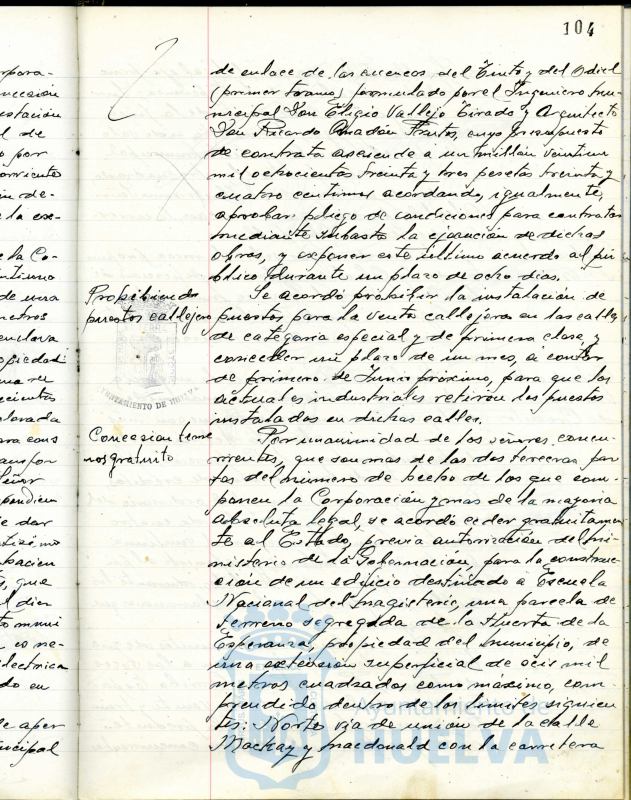 104
de enlace de las cuencas del Tinto y del Odiel
(primer tramo) formulado por el Ingeniero mu-
nicipal Don Eligio Vallejo Tirado y Arquitecto
Don Ricardo Anadón Frutos, cuyo presupuesto
de contrata asciende a un millón veintiun
mil ochocientas treinta y tres pesetas treinta y
cuatro centimos acordando, igualmente,
aprobar pliego de condiciones para contratar
mediante subasta la ejecución de dichas
obras, y exponer este último acuerdo al pú-
blico durante un plazo de ocho dias.
Prohibiendo
puestos callejeros
Se acordó prohibir la instalación de
puestos para la venta callejera en las calles
de categoria especial y de primera clase, y
conceder un plazo de un mes, a contar
de primero de Junio próximo, para que los
actuales industriales retiren los puestos
instalados en dichas calles.
Concesion terre
nos gratuito
Por unanimidad de los señores concu-
rrentes, que son mas de las dos terceras par
tes del número de hecho de los que com-
ponen la Corporación y mas de la mayoria
absoluta legal, se acordó ceder gratuitamen
te al Estado, previa autorización del Mi-
nisterio de la Gobernación, para la construc-
cion de un edificio destinado a Escuela
Nacional del Magisterio, una parcela de
terreno segregada de la Huerta de la
Esperanza, propiedad del municipio, de
una extension superficial de seis mil
metros cuadrados como máximo, com-
prendido dentro de los limites siguien
tes: Norte via de union de la calle
Mackay y Macdonald con la carretera
AYUNTAMIENTO DE HUELVA
Ayuntamiento de
HUELVA